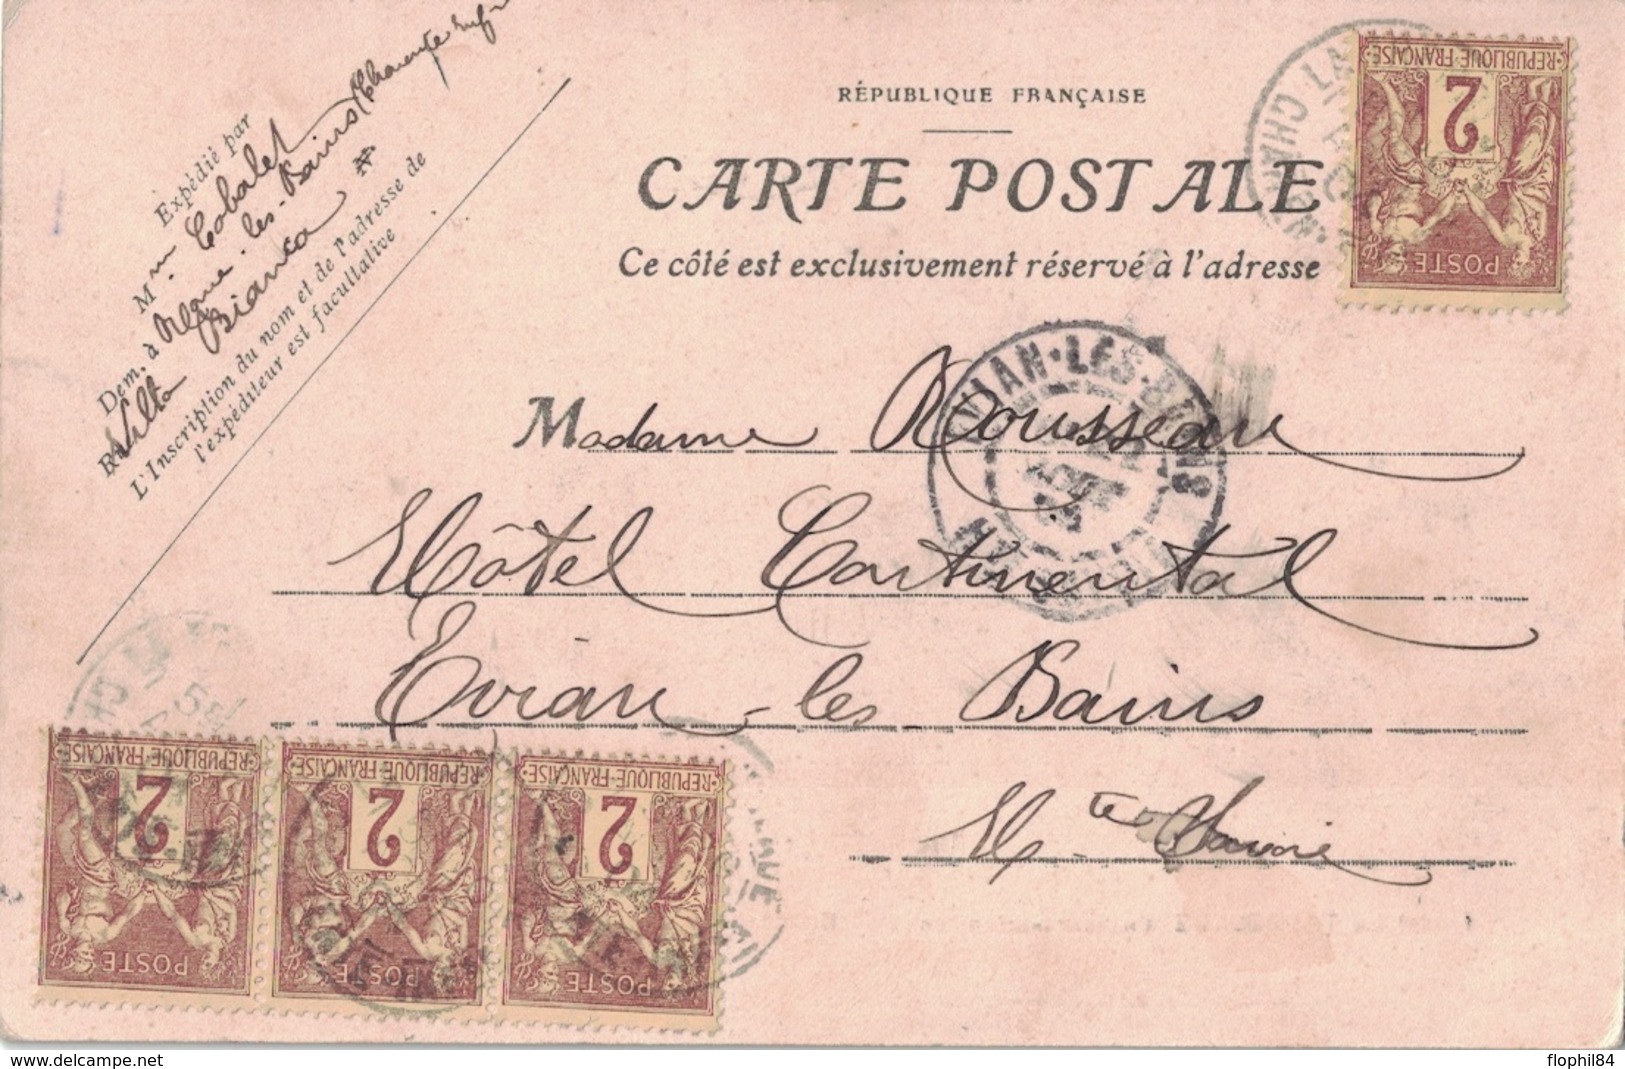 RÉPUBLIQUE FRANÇAISE
CARTE POSTALE
Ce côté est exclusivement réservé à l'adresse
Expédié par
M
Dem. à
les-Bains
R
Bianca
L'Inscription du nom et de l'adresse de
l'expéditeur est facultative
Madame Rousseau
Hôtel Continental
Evian-les-Bains
Hte Savoie
REPUBLIQUE·FRANÇAISE
2
POSTE
EVIAN-LES-BAINS
REPUBLIQUE·FRANÇAISE
2
POSTE
REPUBLIQUE·FRANÇAISE
2
POSTE
REPUBLIQUE·FRANÇAISE
2
POSTE
delcampe.net
flophil84